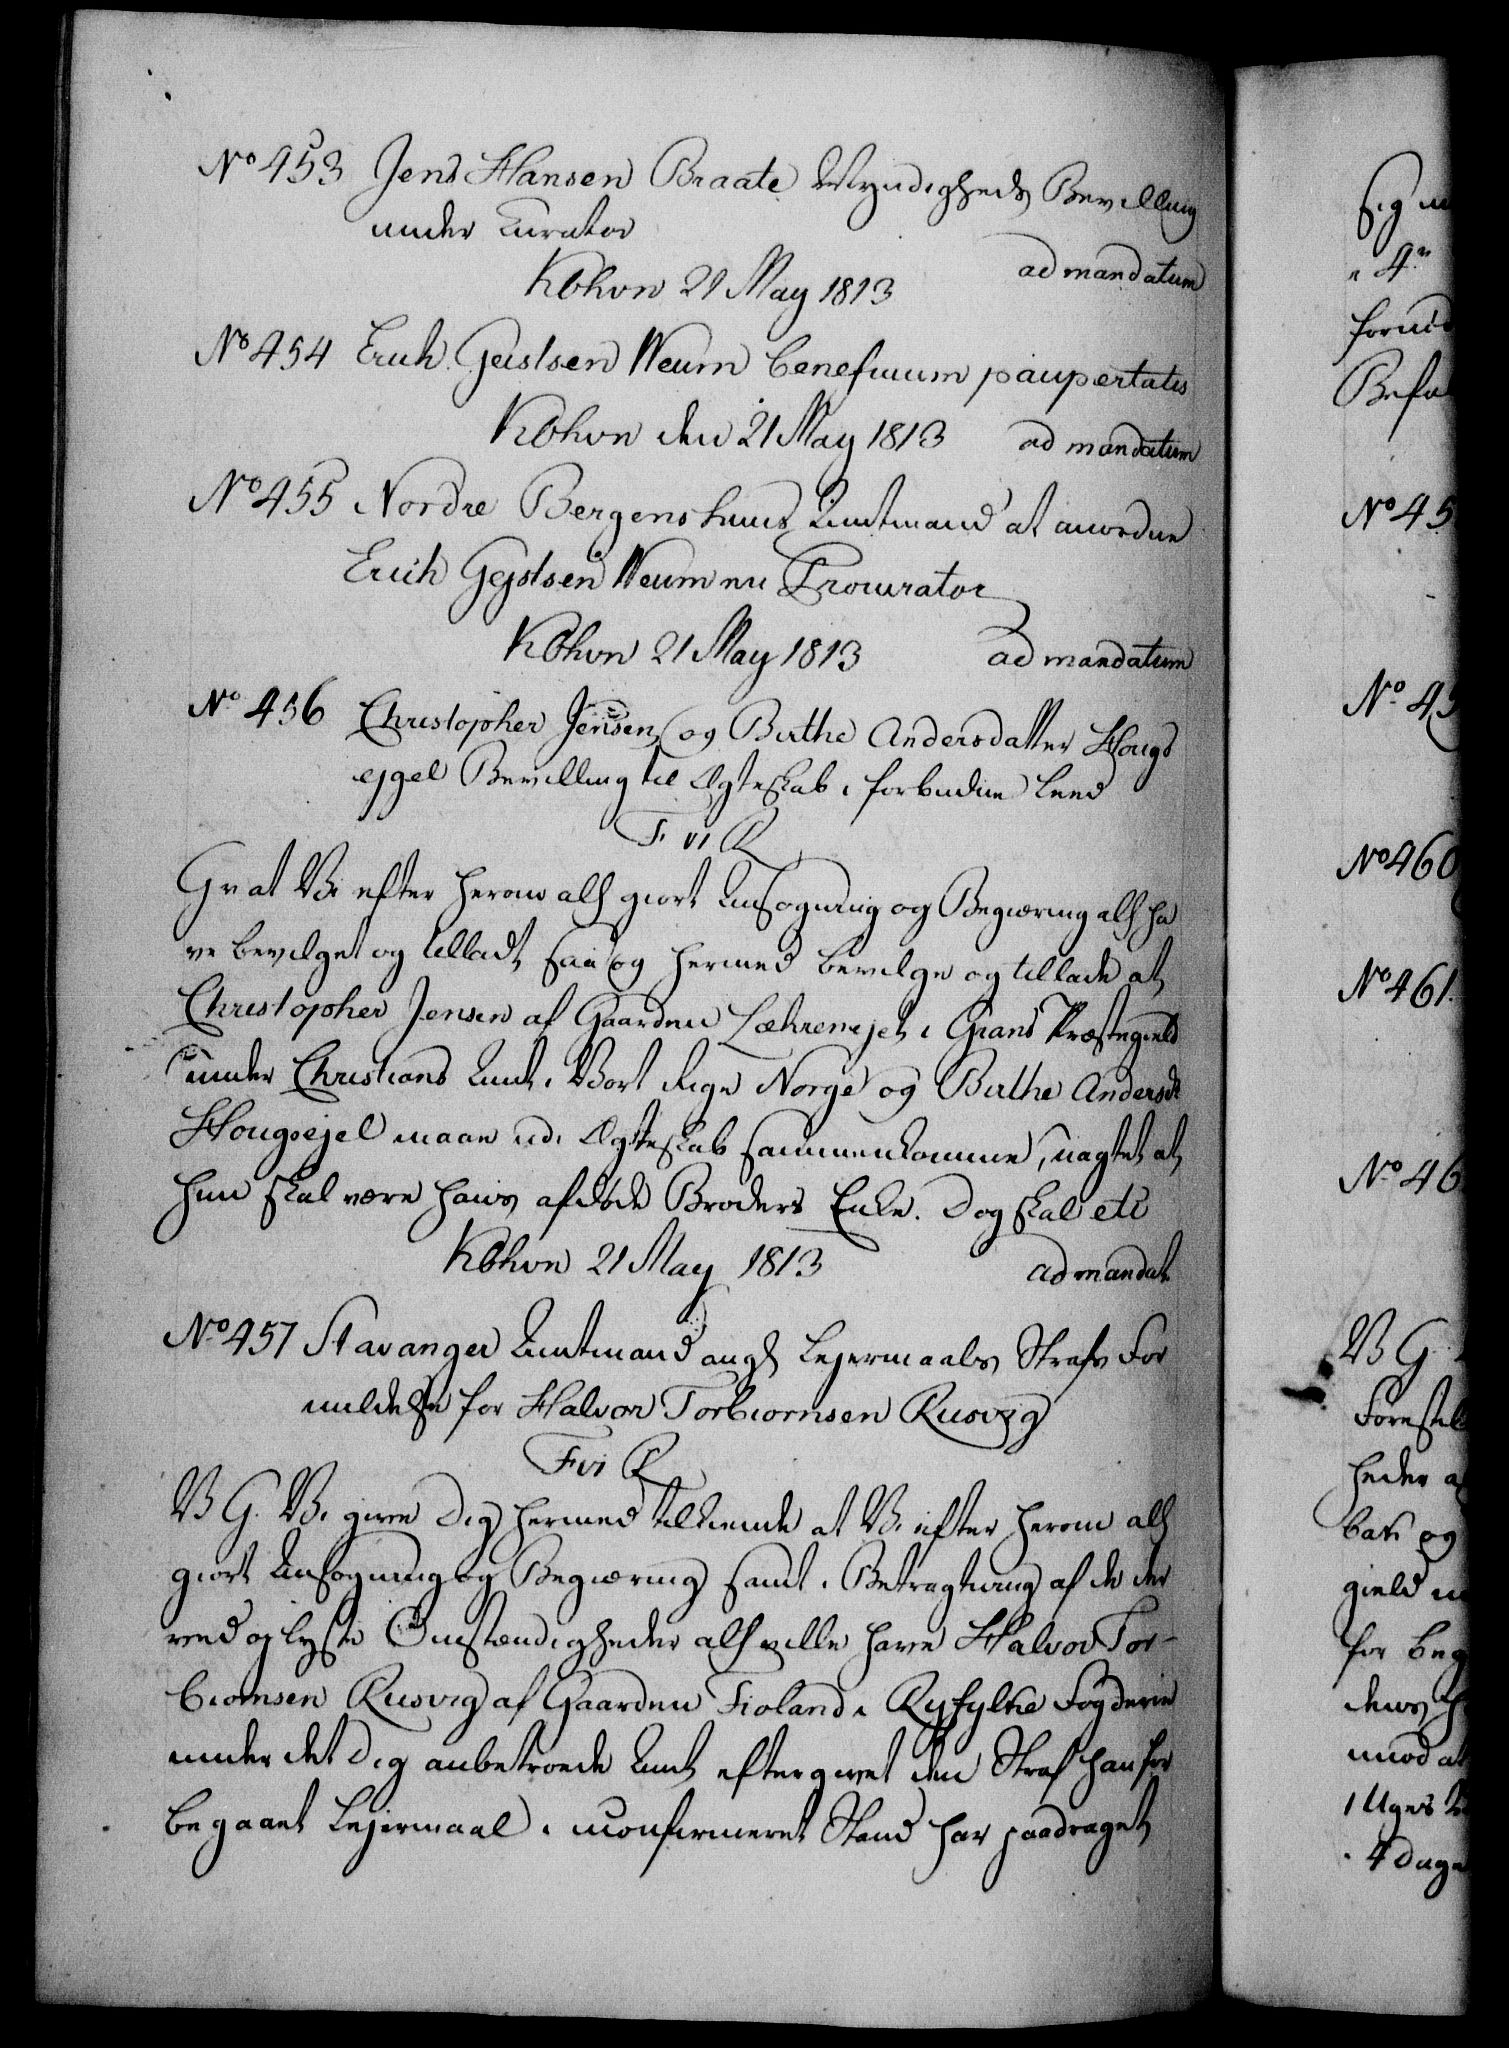 No 453 Jens Hansen Braate Myndigheds Bevilling
under Curator
Kbhvn 21 May 1813 ad mandatum
No 454 Erich Geistsen Neum beneficium paupertatis
Kbhvn den 21 May 1813 ad mandatum
No 455 Nordre Bergenshuus Amtmand at anordne
Erich Gejstsen Neum en Procurator
Kbhvn 21 May 1813 ad mandatum
No 456 Christopher Jensen og Birthe Andersdatter Hougs
ejgel Bevilling til Ægteskab i forbudne Leed
F VI R
G v at Vi efter herom allh giort Ansøgning og Begiæring allh ha
ve bevilget og tilladt, saa og hermed bevilge og tillade at
Christopher Jensen af Gaarden Læhrenejet i Grans Præstegield
under Christians Amt i Vort Rige Norge og Birthe Andersdr
Hougsejel maae udi Ægteskab sammenkomme, uagtet at
hun skal være hans afdøde Broders Enke. Dog skal etc
Kbhvn 21 May 1813 ad mandat.
No 457 Stavanger Amtmand angd Lejermaals Strafs For
mildelse for Halvor Torbiørnsen Rusvig
F VI R
V G. Vi give Dig hermed tilkiende at Vi efter herom allh
giort Ansøgning og Begiæring samt i Betragtning af de der
ved oplyste Omstændigheder allh ville have Halvor Tor-
biørnsen Rusvig af Gaarden Fioland i Ryfylke Fogderie
under det Dig anbetroede Amt eftergivet den Straf han for
begaaet Lejermaal i uconfirmeret Stand har paadraget
Sig
4
No 45
No 45
No 460
No 461.
No 46
V G.
heder
gield
for beg
imod at
1 Uges
4 Dage